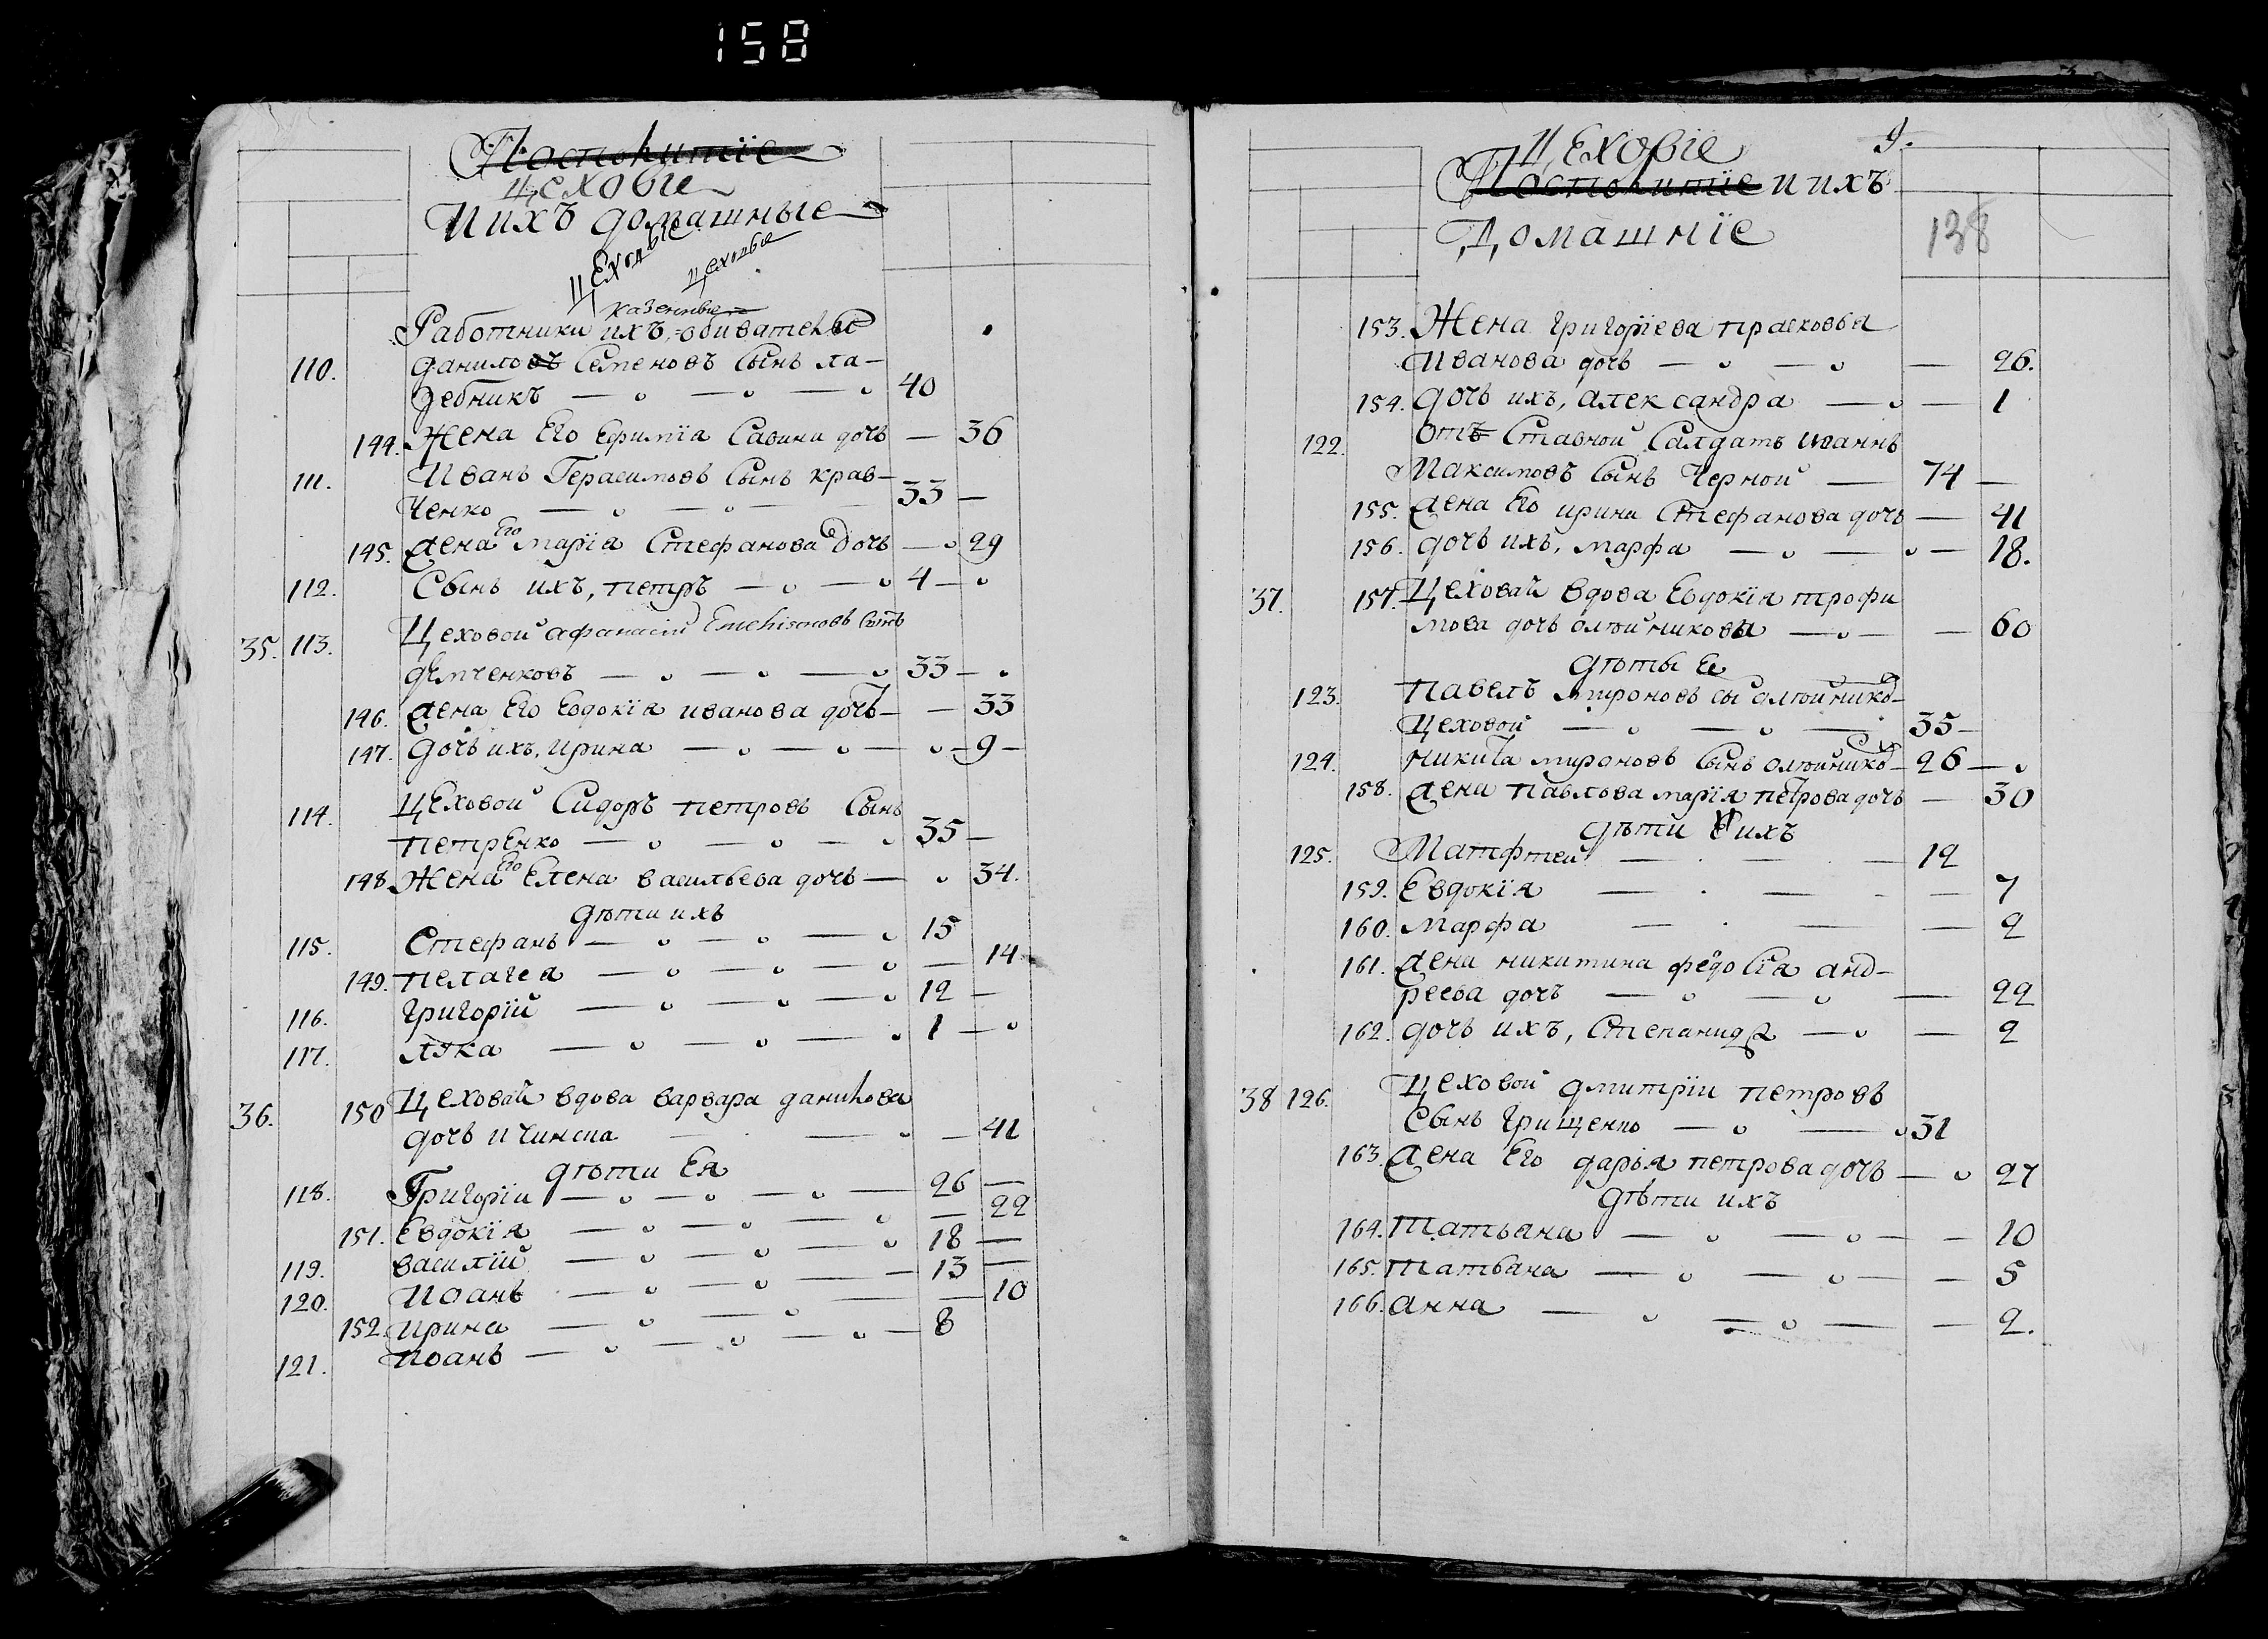 158
Посполитїе
Цеховїе
И ихъ домашные
Цеховые
цеховые
казенные
Работники ихъ, обивателѣ
110. данилов Семеновъ Сынъ ла-
ребникъ — 40
144. Жена Его Ефимїа Савина дочь — 36
111. Иванъ Герасимовъ Сынъ крав-
ченко — 33 —
145. жена Его марїа Стефанова дочь — 29
112. Сынъ ихъ, петръ — 4 —
35. 113. Цеховой афанасїй Емелїановъ Сынъ
демченковъ — 33 —
146. жена Его Евдокїя иванова дочь — 33
147. дочь ихъ, ирина — 9 —
114. Цеховой Сидоръ петровъ Сынъ
петренко — 35 —
148. Жена Его Елена васильева дочь — 34.
дѣти ихъ
115. Стефанъ — 15
149. пелагея — 14
116. григорїй — 12 —
117. лука — 1 —
36. 150 Цеховая вдова варвара данилова
дочь — 41
дѣти Ея
118. Григорїи — 26 —
151. Евдокїя — 22
119. василїй — 18 —
120. Иоанъ — 13 —
152. ирина — 10
121. Иоанъ — 8
9.
Цеховїе
Посполитїе и ихъ
Домашнїе
138
153. Жена григорїева прасковья
Иванова дочь — 26.
154. дочь ихъ, александра — 1
122. отъ Ставной Салдатъ иоаннъ
Максимовъ Сынъ Черной — 74 —
155. жена Его ирина Стефанова дочь — 41
156. дочь ихъ, марфа — 18.
37. 157. Цеховая вдова Евдокїя трофи
мова дочь олѣйникова — 60
дѣты Ее
123. павелъ мироновъ сы олѣйнико-
цеховой — 35 —
124. никита мироновъ Сынъ олѣйнико — 26 —
158. жена павлова марїя петрова дочь — 30
дѣти ихъ
125. Матфтей — 12
159. Евдокїя — 7
160. марфа — 2
161. жена никитина федосїя анд-
реева дочь — 22
162. дочь ихъ, Степанида — 2
38 126. Цеховой дмитрїи петровъ
Сынъ грищенко — 31
163. жена Его дарья петрова дочь — 27
дѣти ихъ
164. татьяна — 10
165. татьяна — 5
166. анна — 2.